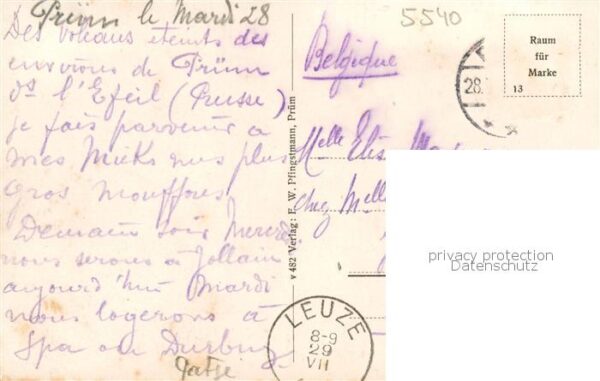 Prüm le Mardi 28
Des volcans éteints des
environs de Prüm
ds l'Efeil (Prusse)
je fais parvenir à
mes Mieks mes plus
gros mouffons
Demain soir Mercredi
nous serons à Jollain
aujourd'hui Mardi
nous logerons à
Spa ou Durbuy
5540
Belgique
Raum
für
Marke
13
28.
v 482 Verlag: E. W. Pfingstmann, Prüm
Melle Elis
chez Melle
privacy protection
Datenschutz
LEUZE
8-9
29
VII